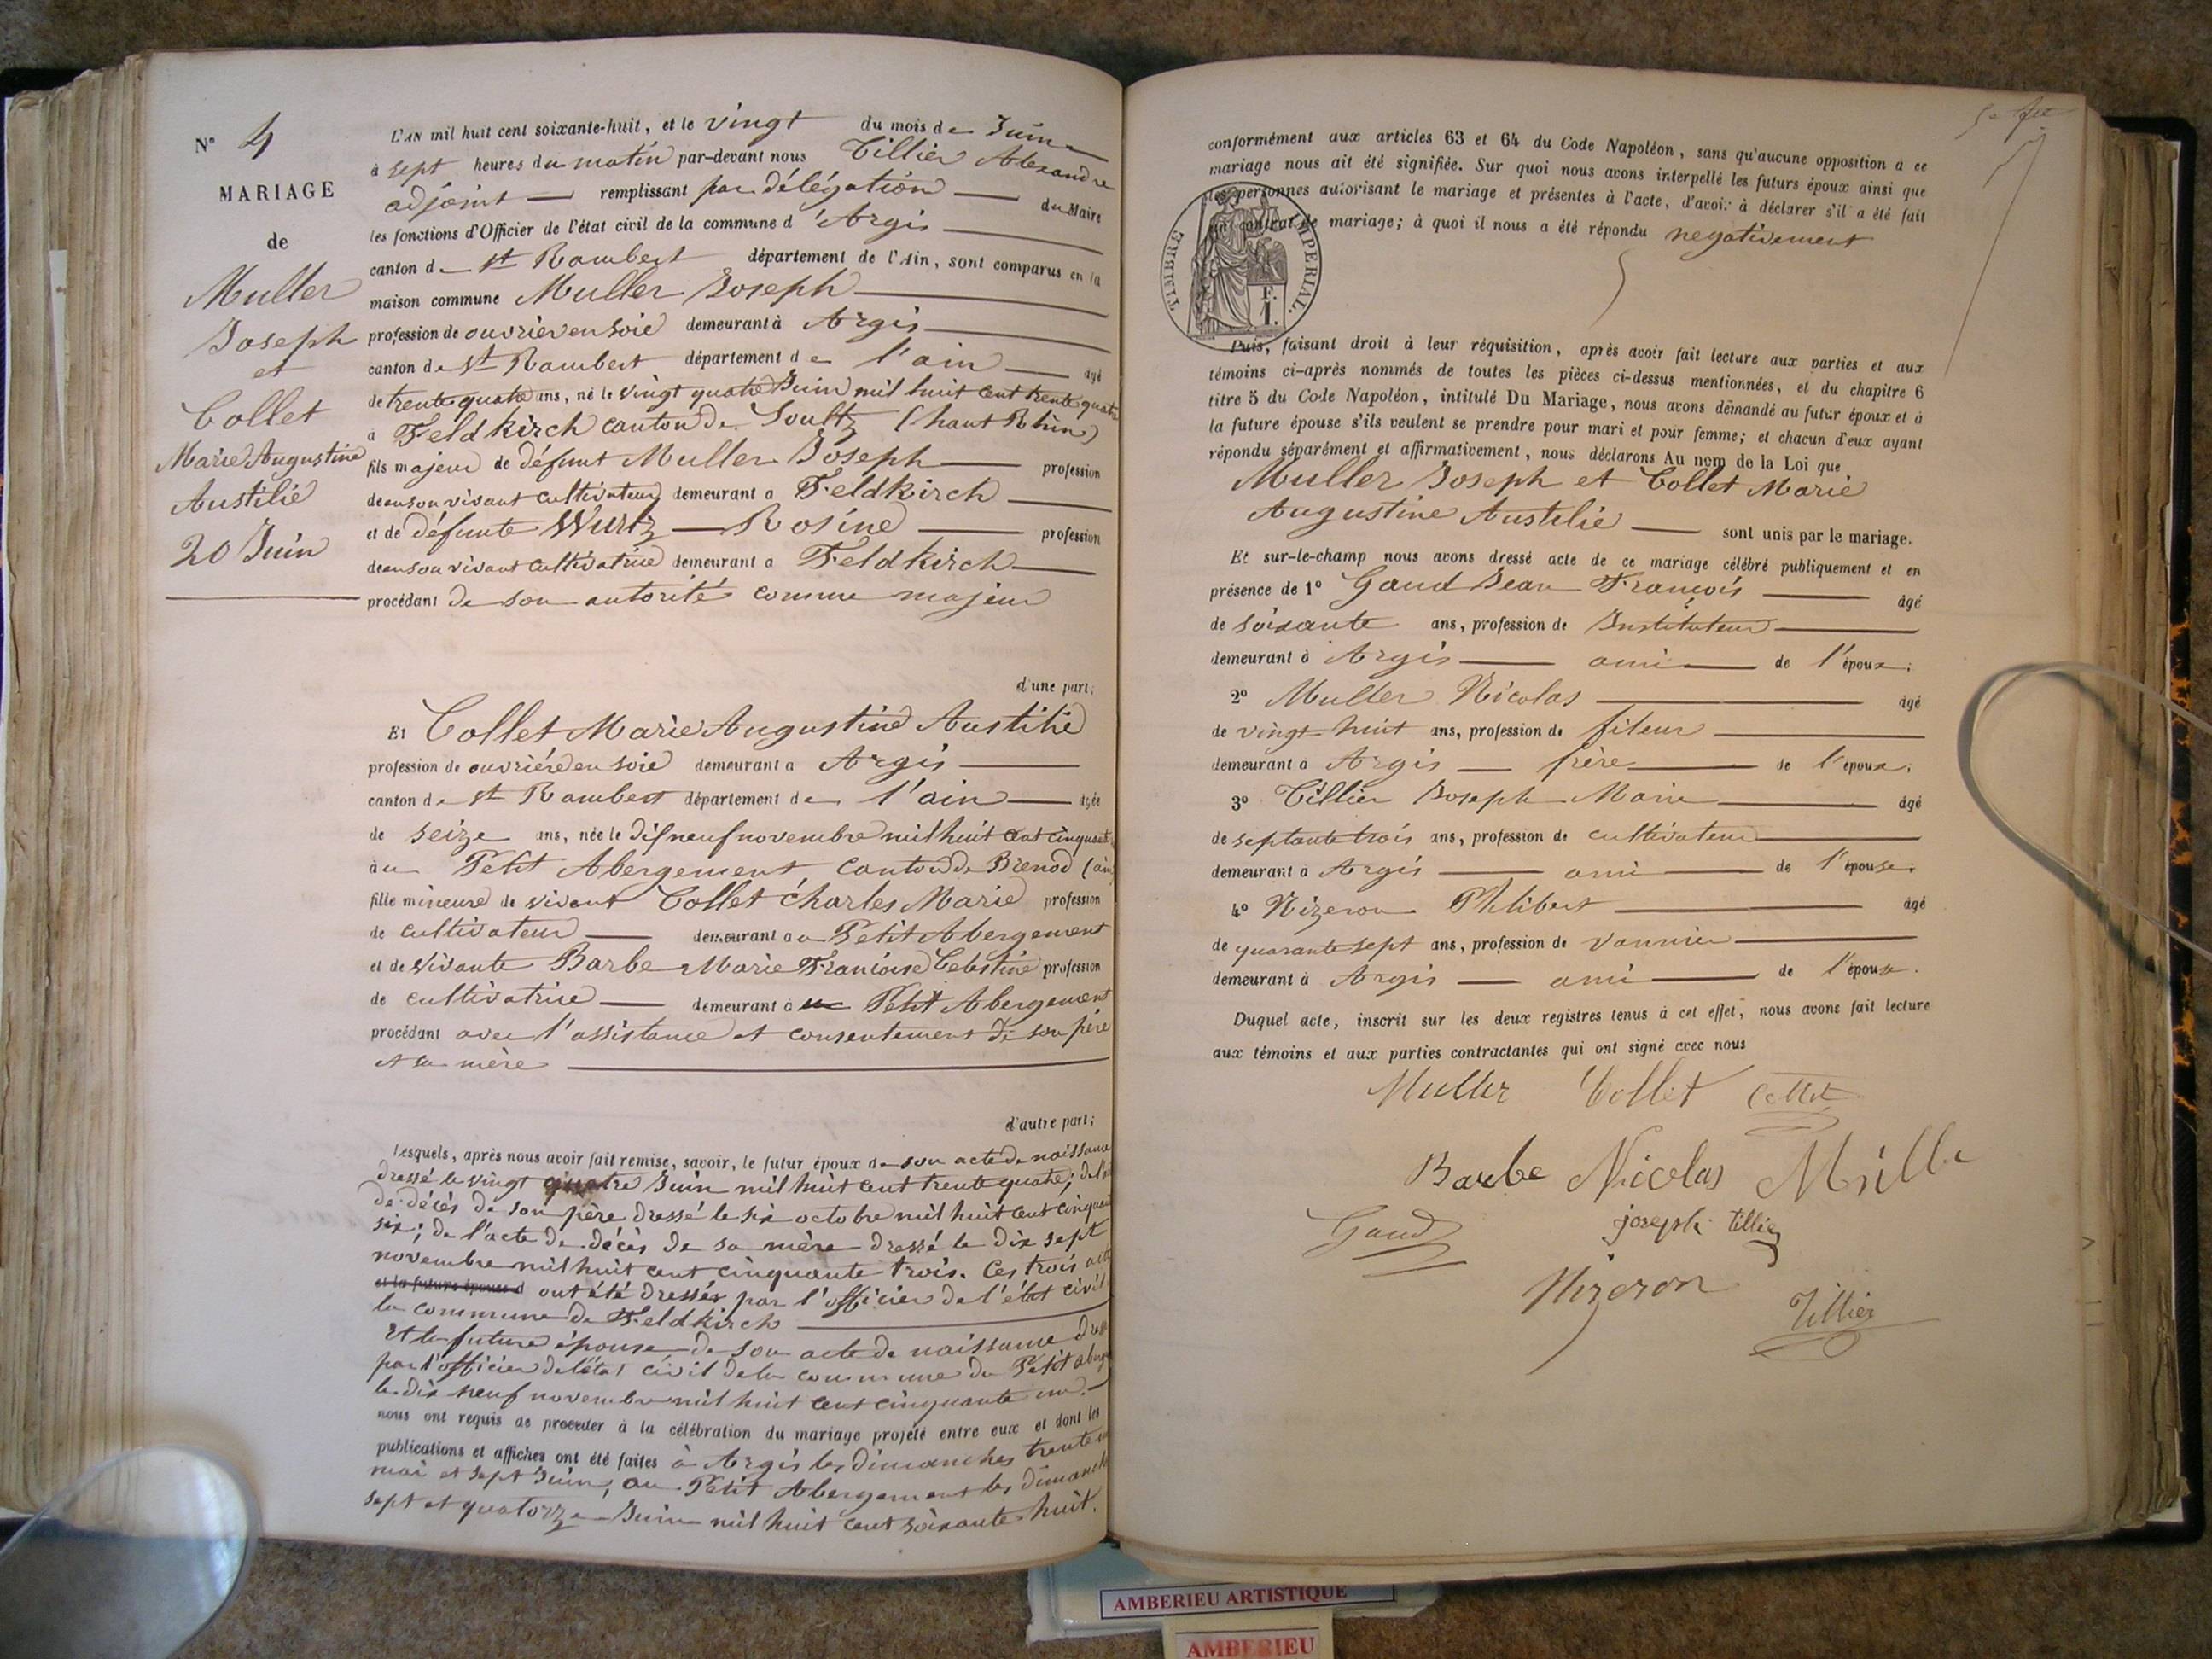 N° 4
MARIAGE
de
Muller
Joseph
et
Collet
Marie Augustine
Austilie
20 Juin
L'AN mil huit cent soixante-huit, et le vingt du mois de Juin
à sept heures du matin par-devant nous Tillier Alexandre
adjoint remplissant par délégation du Maire
les fonctions d'Officier de l'état civil de la commune d'Argis
canton de St Rambert département de l'Ain, sont comparus en la
maison commune Muller Joseph
profession de ouvrier en soie demeurant à Argis
canton de St Rambert département de l'ain âgé
de trente quatre ans, né le vingt quatre Juin mil huit cent trente quatre
à Feldkirch canton de Soultz (haut Rhin)
fils majeur de défunt Muller Joseph profession
de en son vivant cultivateur demeurant à Feldkirch
et de défunte Wurtz Rosine profession
de en son vivant cultivatrice demeurant à Feldkirch
procédant de son autorité comme majeur
d'une part;
Et Collet Marie Augustine Austilie
profession de ouvrière en soie demeurant à Argis
canton de St Rambert département de l'ain âgée
de seize ans, née le dif neuf novembre mil huit cent cinquante
à au Petit Abergement, canton de Brenod (ain
fille mineure de vivant Collet Charles Marie profession
de cultivateur demeurant à u Petit Abergement
et de vivante Barbe Marie Françoise Celestine profession
de cultivatrice demeurant à Petit Abergement
procédant avec l'assistance et consentement de son père
et sa mère
d'autre part;
Lesquels, après nous avoir fait remise, savoir, le futur époux de son acte de naissance
dressé le vingt quatre Juin mil huit cent trente quatre; de l'
de décès de son père dressé le six octobre mil huit cent cinquante
six; de l'acte de décès de sa mère dressé le dix sept
novembre mil huit cent cinquante trois. Ces trois actes
et la future épouse d ont été dressés par l'officier de l'état civil
la commune de Feldkirch
Et la future épouse de son acte de naissance dressé
par l'officier de l'état civil de la commune du Petit aberg
le dix neuf novembre mil huit cent cinquante un.
nous ont requis de procéder à la célébration du mariage projeté entre eux et dont les
publications et affiches ont été faites à Argis les dimanches trente un
mai et sept Juin, au Petit Abergement les dimanches
sept et quatorze Juin mil huit cent soixante huit.
conformément aux articles 63 et 64 du Code Napoléon, sans qu'aucune opposition à ce
mariage nous ait été signifiée. Sur quoi nous avons interpellé les futurs époux ainsi que
les personnes autorisant le mariage et présentes à l'acte, d'avoir à déclarer s'il a été fait
un contrat de mariage; à quoi il nous a été répondu negativement
TIMBRE IMPERIAL.
F.
1.
Puis, faisant droit à leur réquisition, après avoir fait lecture aux parties et aux
témoins ci-après nommés de toutes les pièces ci-dessus mentionnées, et du chapitre 6
titre 5 du Code Napoléon, intitulé Du Mariage, nous avons demandé au futur époux et à
la future épouse s'ils veulent se prendre pour mari et pour femme; et chacun d'eux ayant
répondu séparément et affirmativement, nous déclarons Au nom de la Loi que
Muller Joseph et Collet Marie
Augustine Austilie sont unis par le mariage.
Et sur-le-champ nous avons dressé acte de ce mariage célébré publiquement et en
présence de 1° Gaud Jean François âgé
de soixante ans, profession de Instituteur
demeurant à Argis ami de l'époux;
2° Muller Nicolas âgé
de vingt-huit ans, profession de fileur
demeurant à Argis frère de l'époux;
3° Tillier Joseph Marie âgé
de septante trois ans, profession de cultivateur
demeurant à Argis ami de l'épouse;
4° Nizeron Philibert âgé
de quarante sept ans, profession de vannier
demeurant à Argis ami de l'épouse.
Duquel acte, inscrit sur les deux registres tenus à cet effet, nous avons fait lecture
aux témoins et aux parties contractantes qui ont signé avec nous
Muller Collet Collet
Barbe Nicolas Müller
Gaud joseph tillier
Nizeron
Tillier
AMBERIEU ARTISTIQUE
AMBERIEU